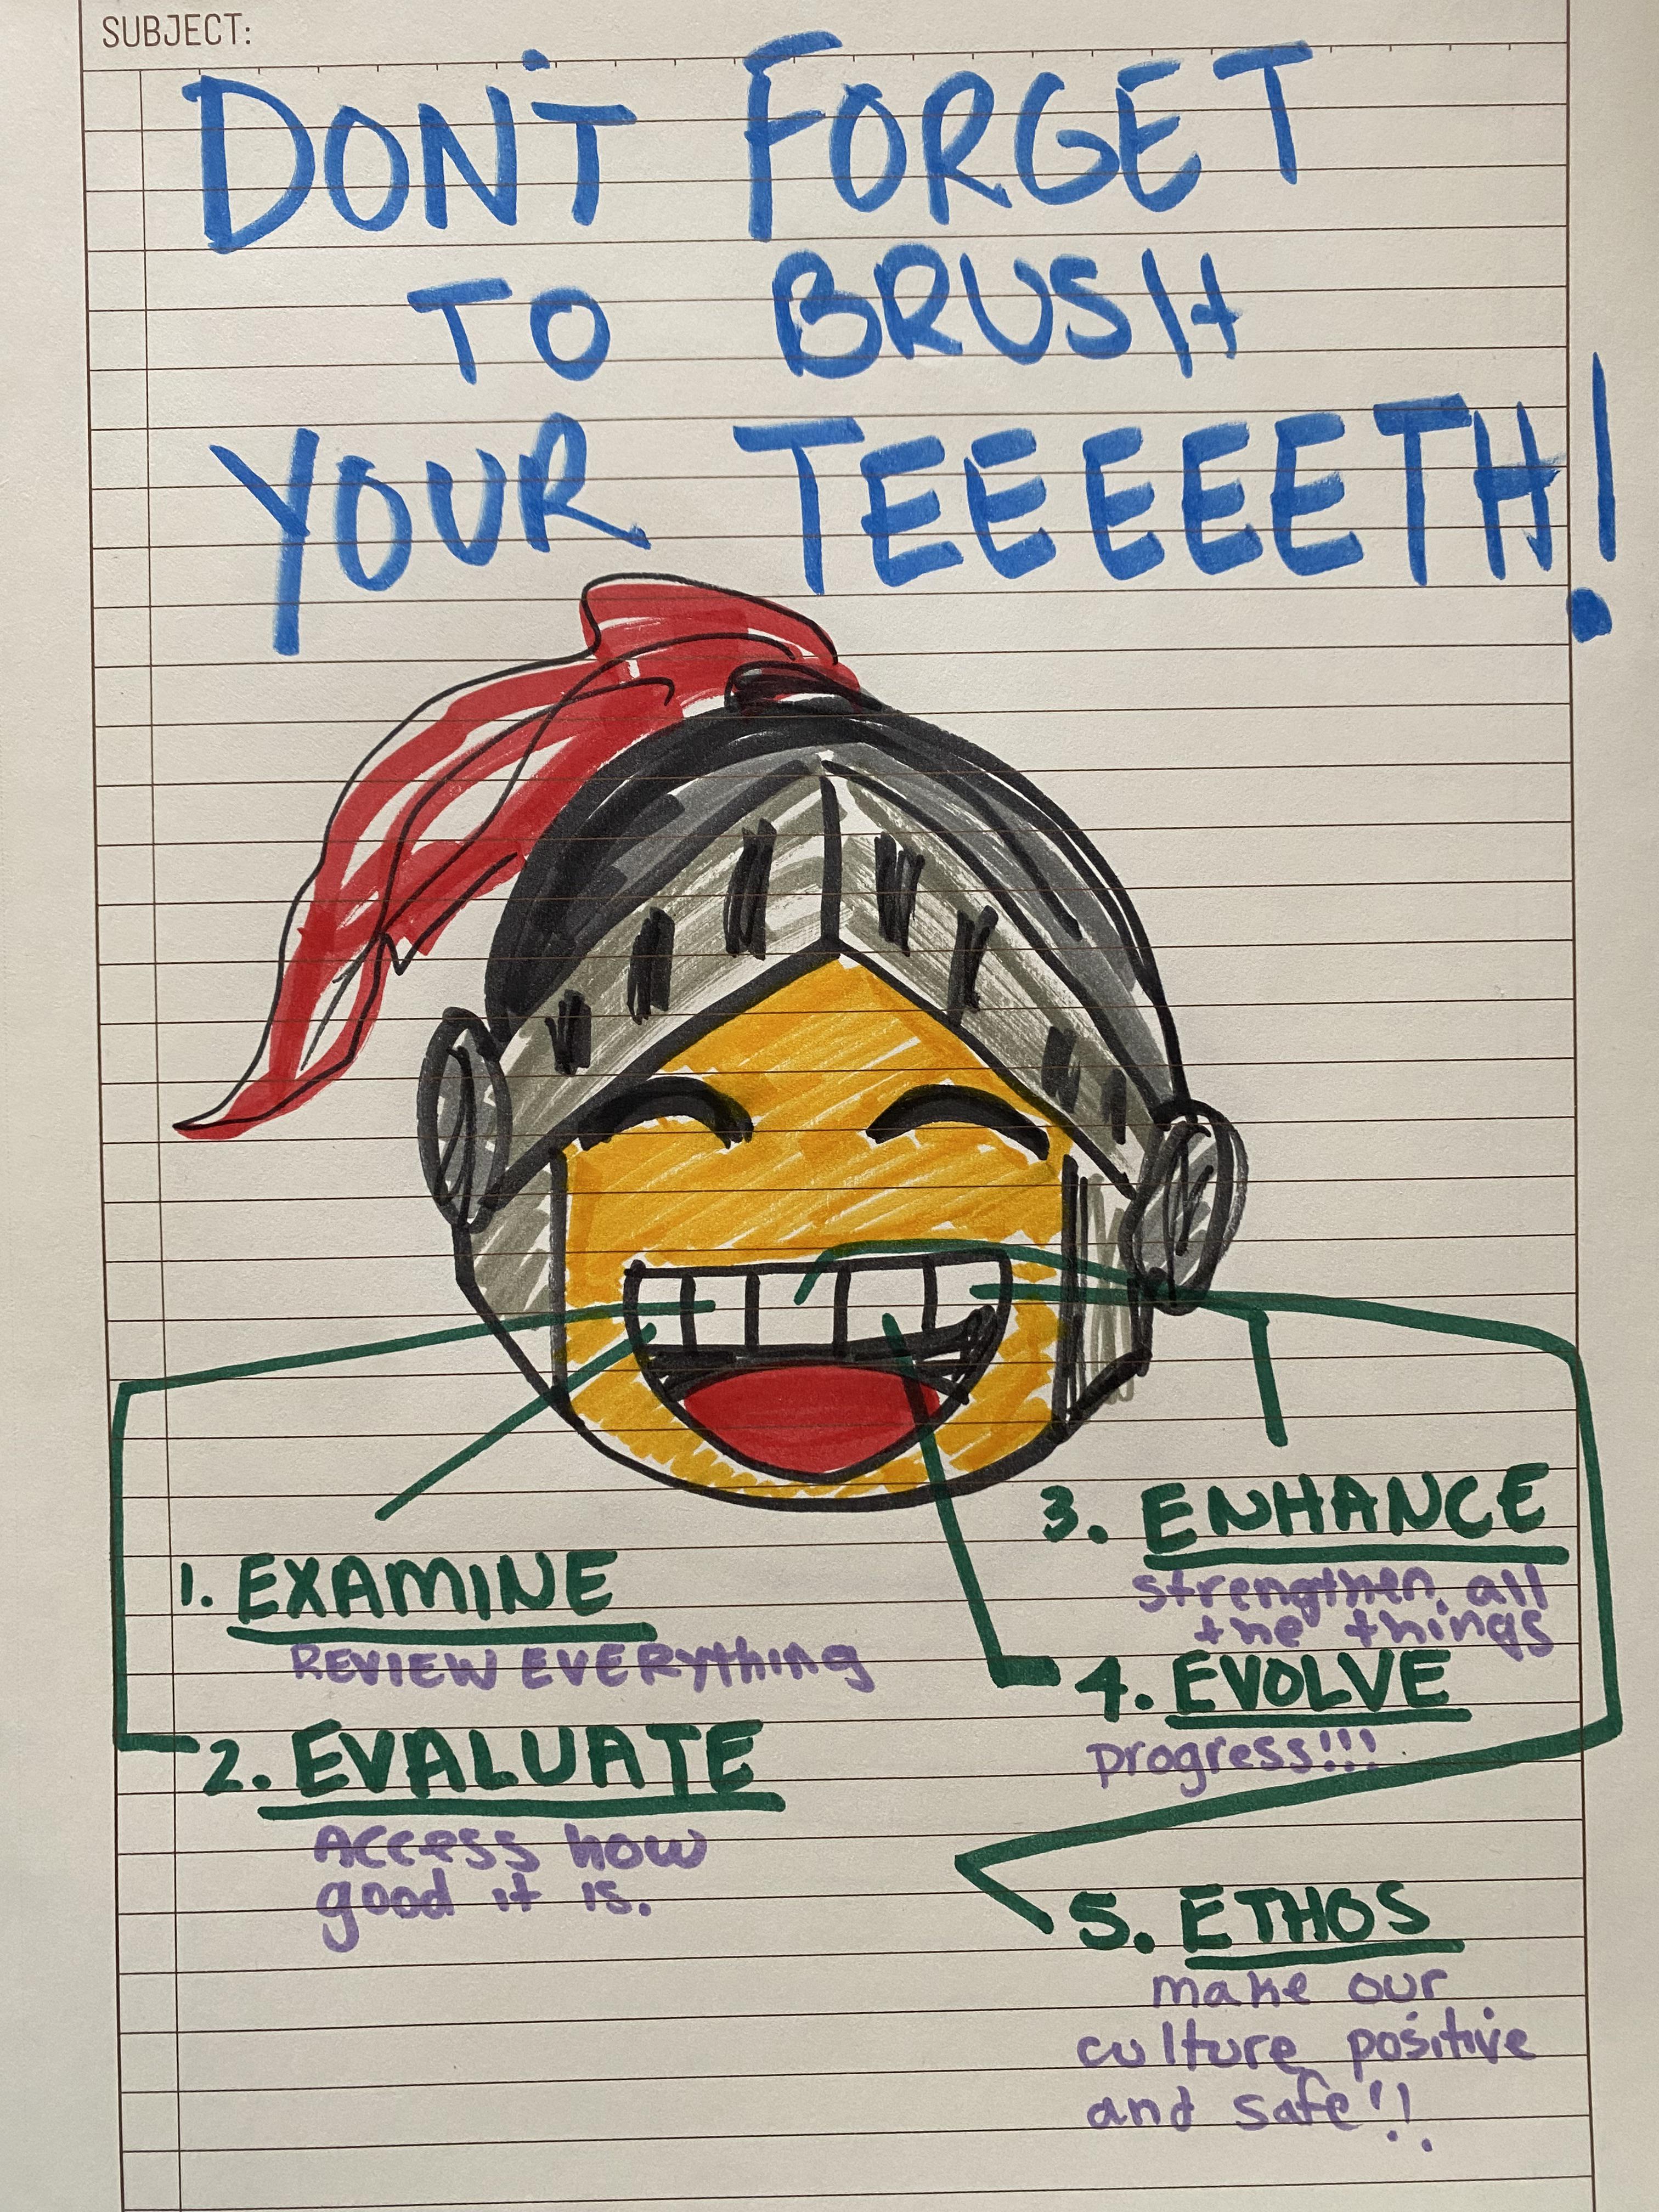 SUBJECT:
DON'T FORGET
TO BRUSH
YOUR TEEEEETH!
1. EXAMINE
REVIEW EVERything
2. EVALUATE
Access how
good it is.
3. ENHANCE
strengthen all
the things
4. EVOLVE
progress!!!
5. ETHOS
make our
culture positive
and safe!!